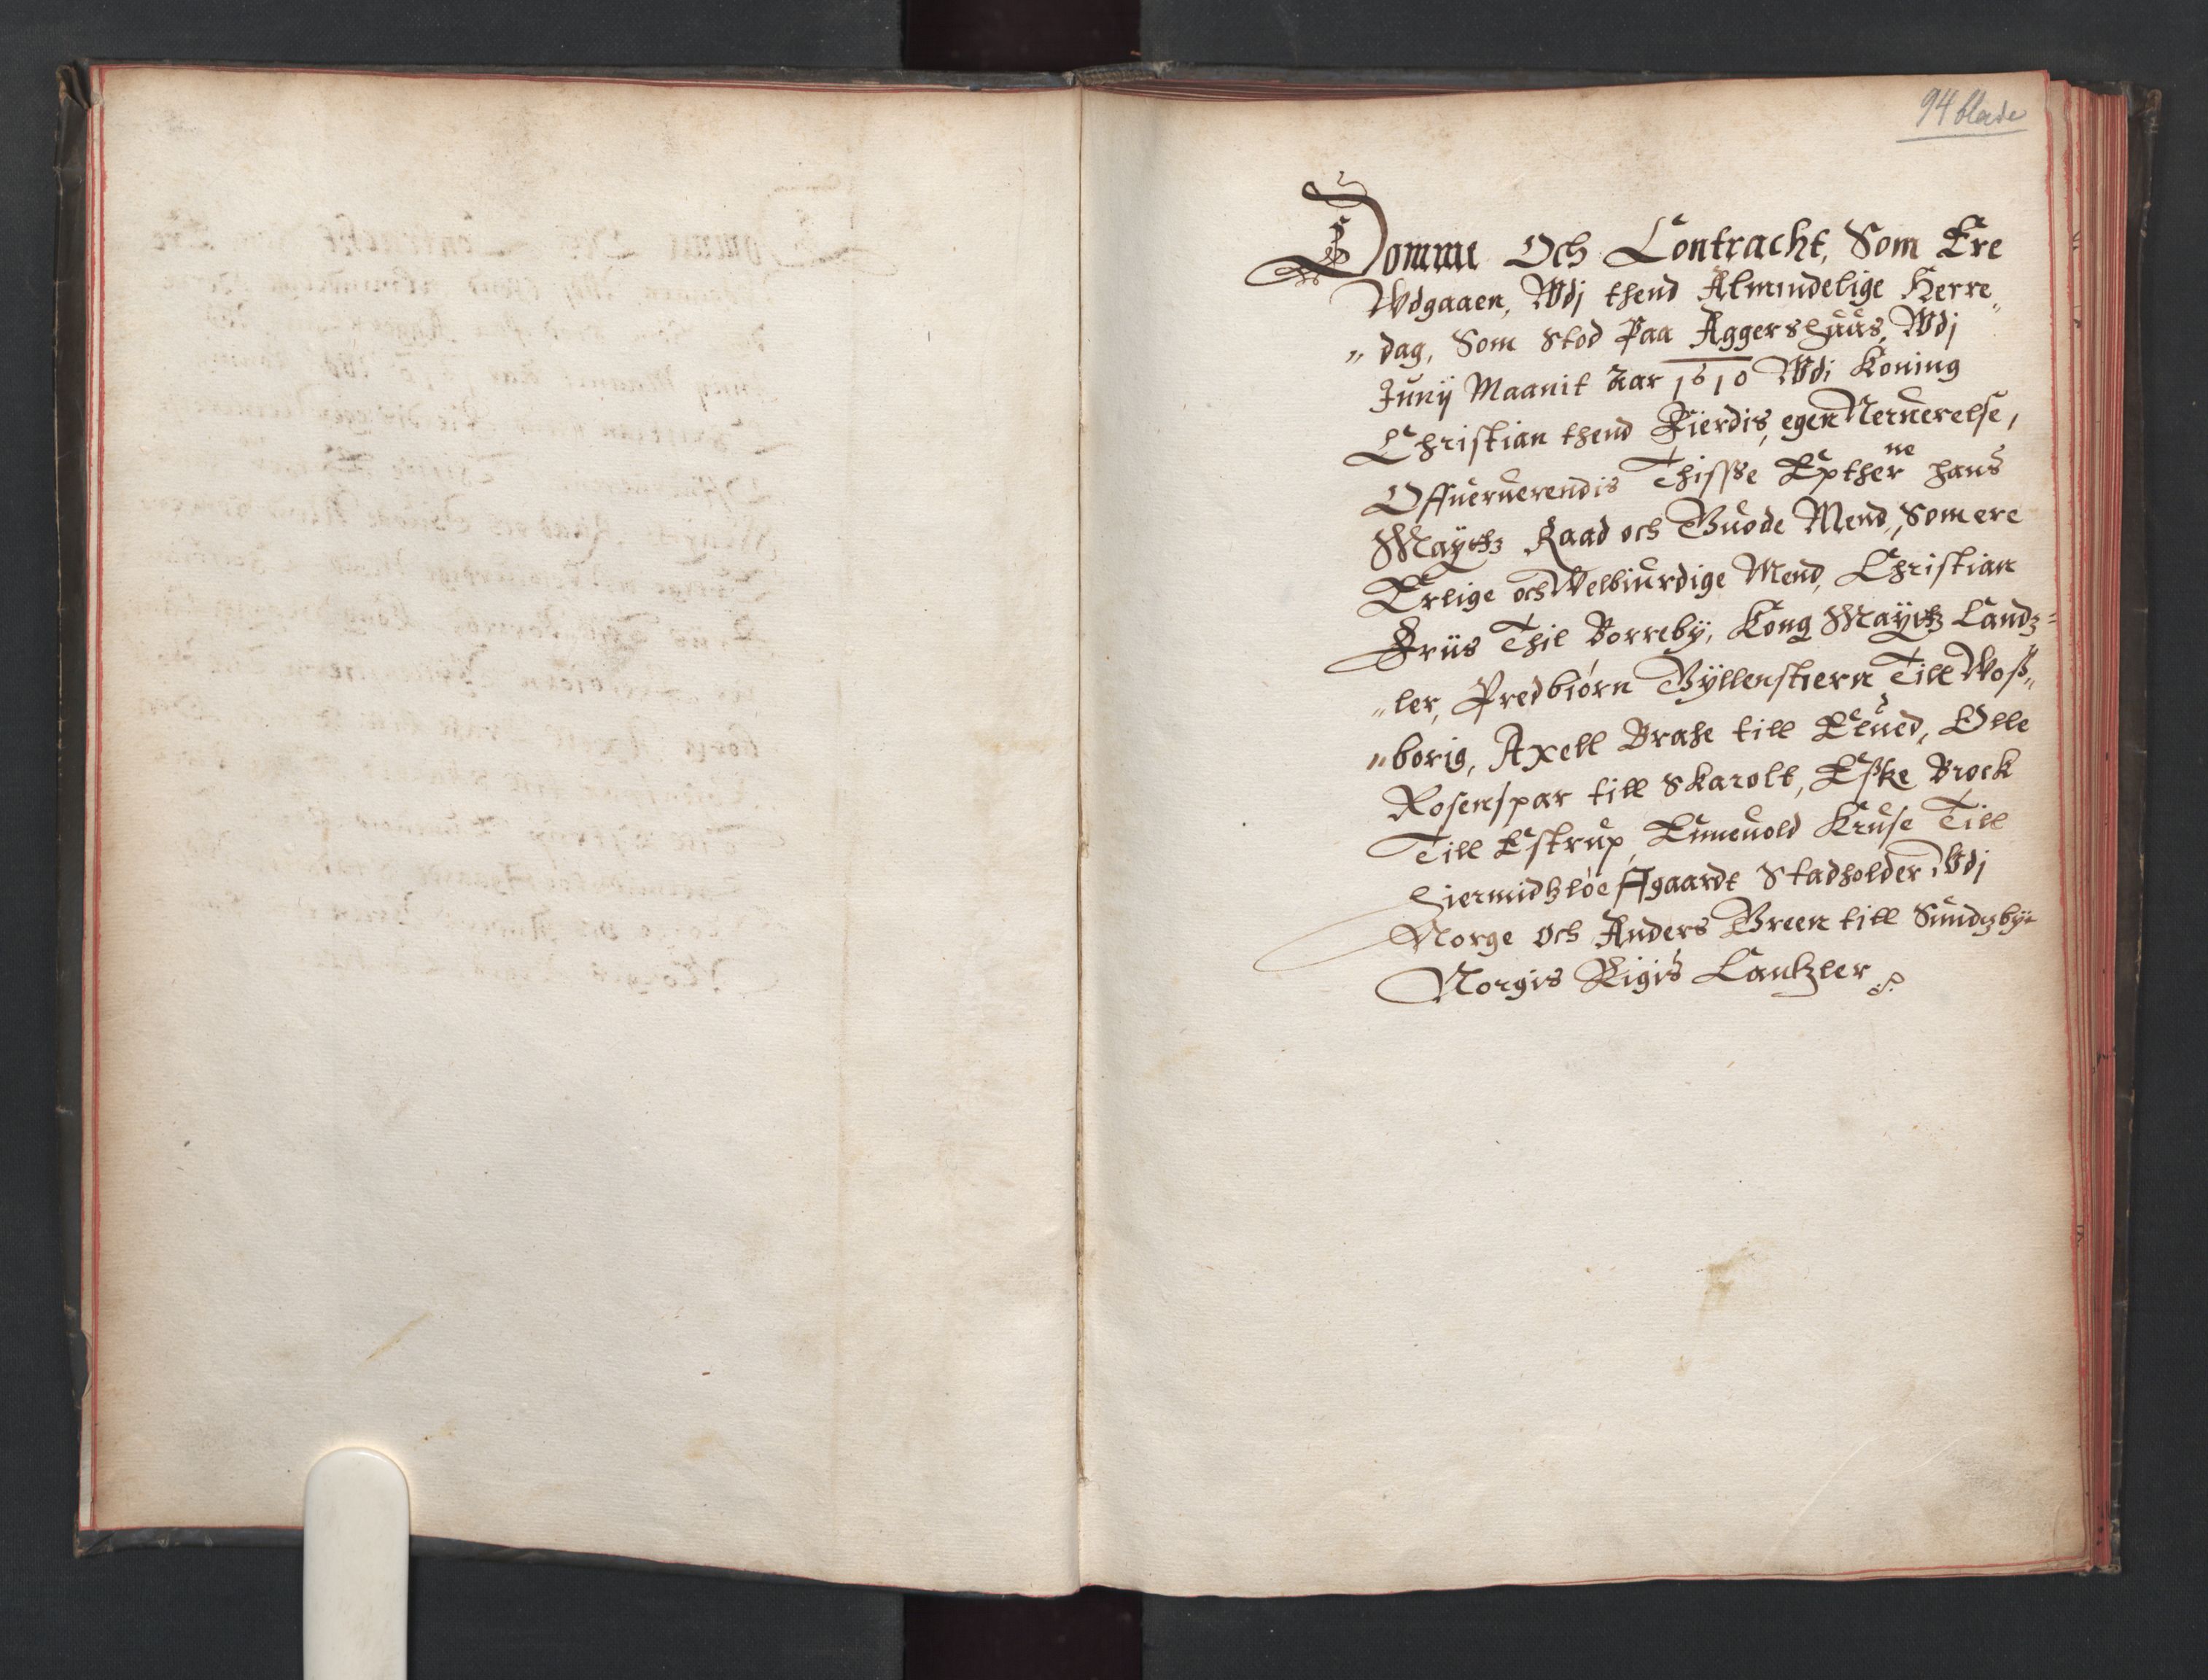 94 blade
Domme Och Contracht, Som Ere
Wdgaaen, Wdj thend Almindelige Herre„
„dag, Som Stod Paa Aggershuus, Wdj
Junij Maanit Aar 1610 Wdi Koning
Christian thend Fierdis, egen Neruerelse,
Offueruerendis Thisse Epther ne hans
Maÿtz Raad och Guode Mend, Som ere
Erlige och Welbiurdige Mend, Christian
Friis Thil Borrebÿ, Kong Maÿtz Candz=
„ler, Predbiørn Gÿllenstiern Till Woß„
„borig, Axell Brahe till Elued, Olle
Rosenspar till Skarolt, Eske Brock
Till Estrup, Enneuold Kruse Till
Hiermidtzløe ffgaardt Stadholder Wdj
Norge och Anders Green till Sundzbÿe
Norgis Rigis Cantzler